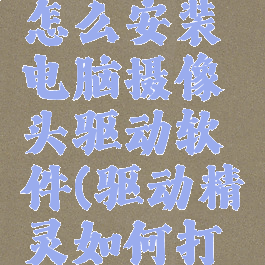 怎么安装
电脑摄像
头驱动软
件(驱动精
灵如何打